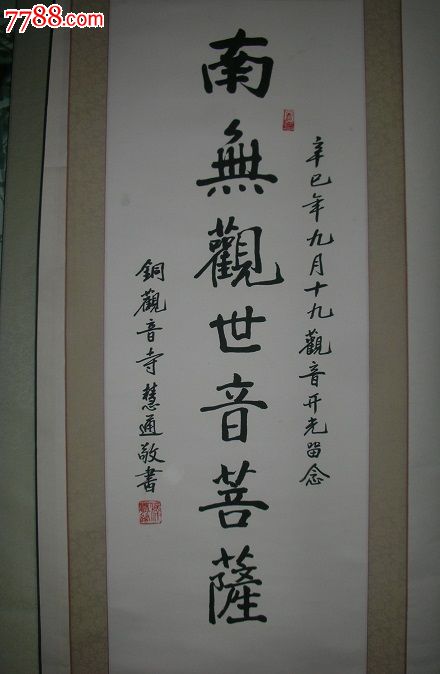 7788.com
辛巳年九月十九觀音开光留念
南無觀世音菩薩
銅觀音寺慧通敬書